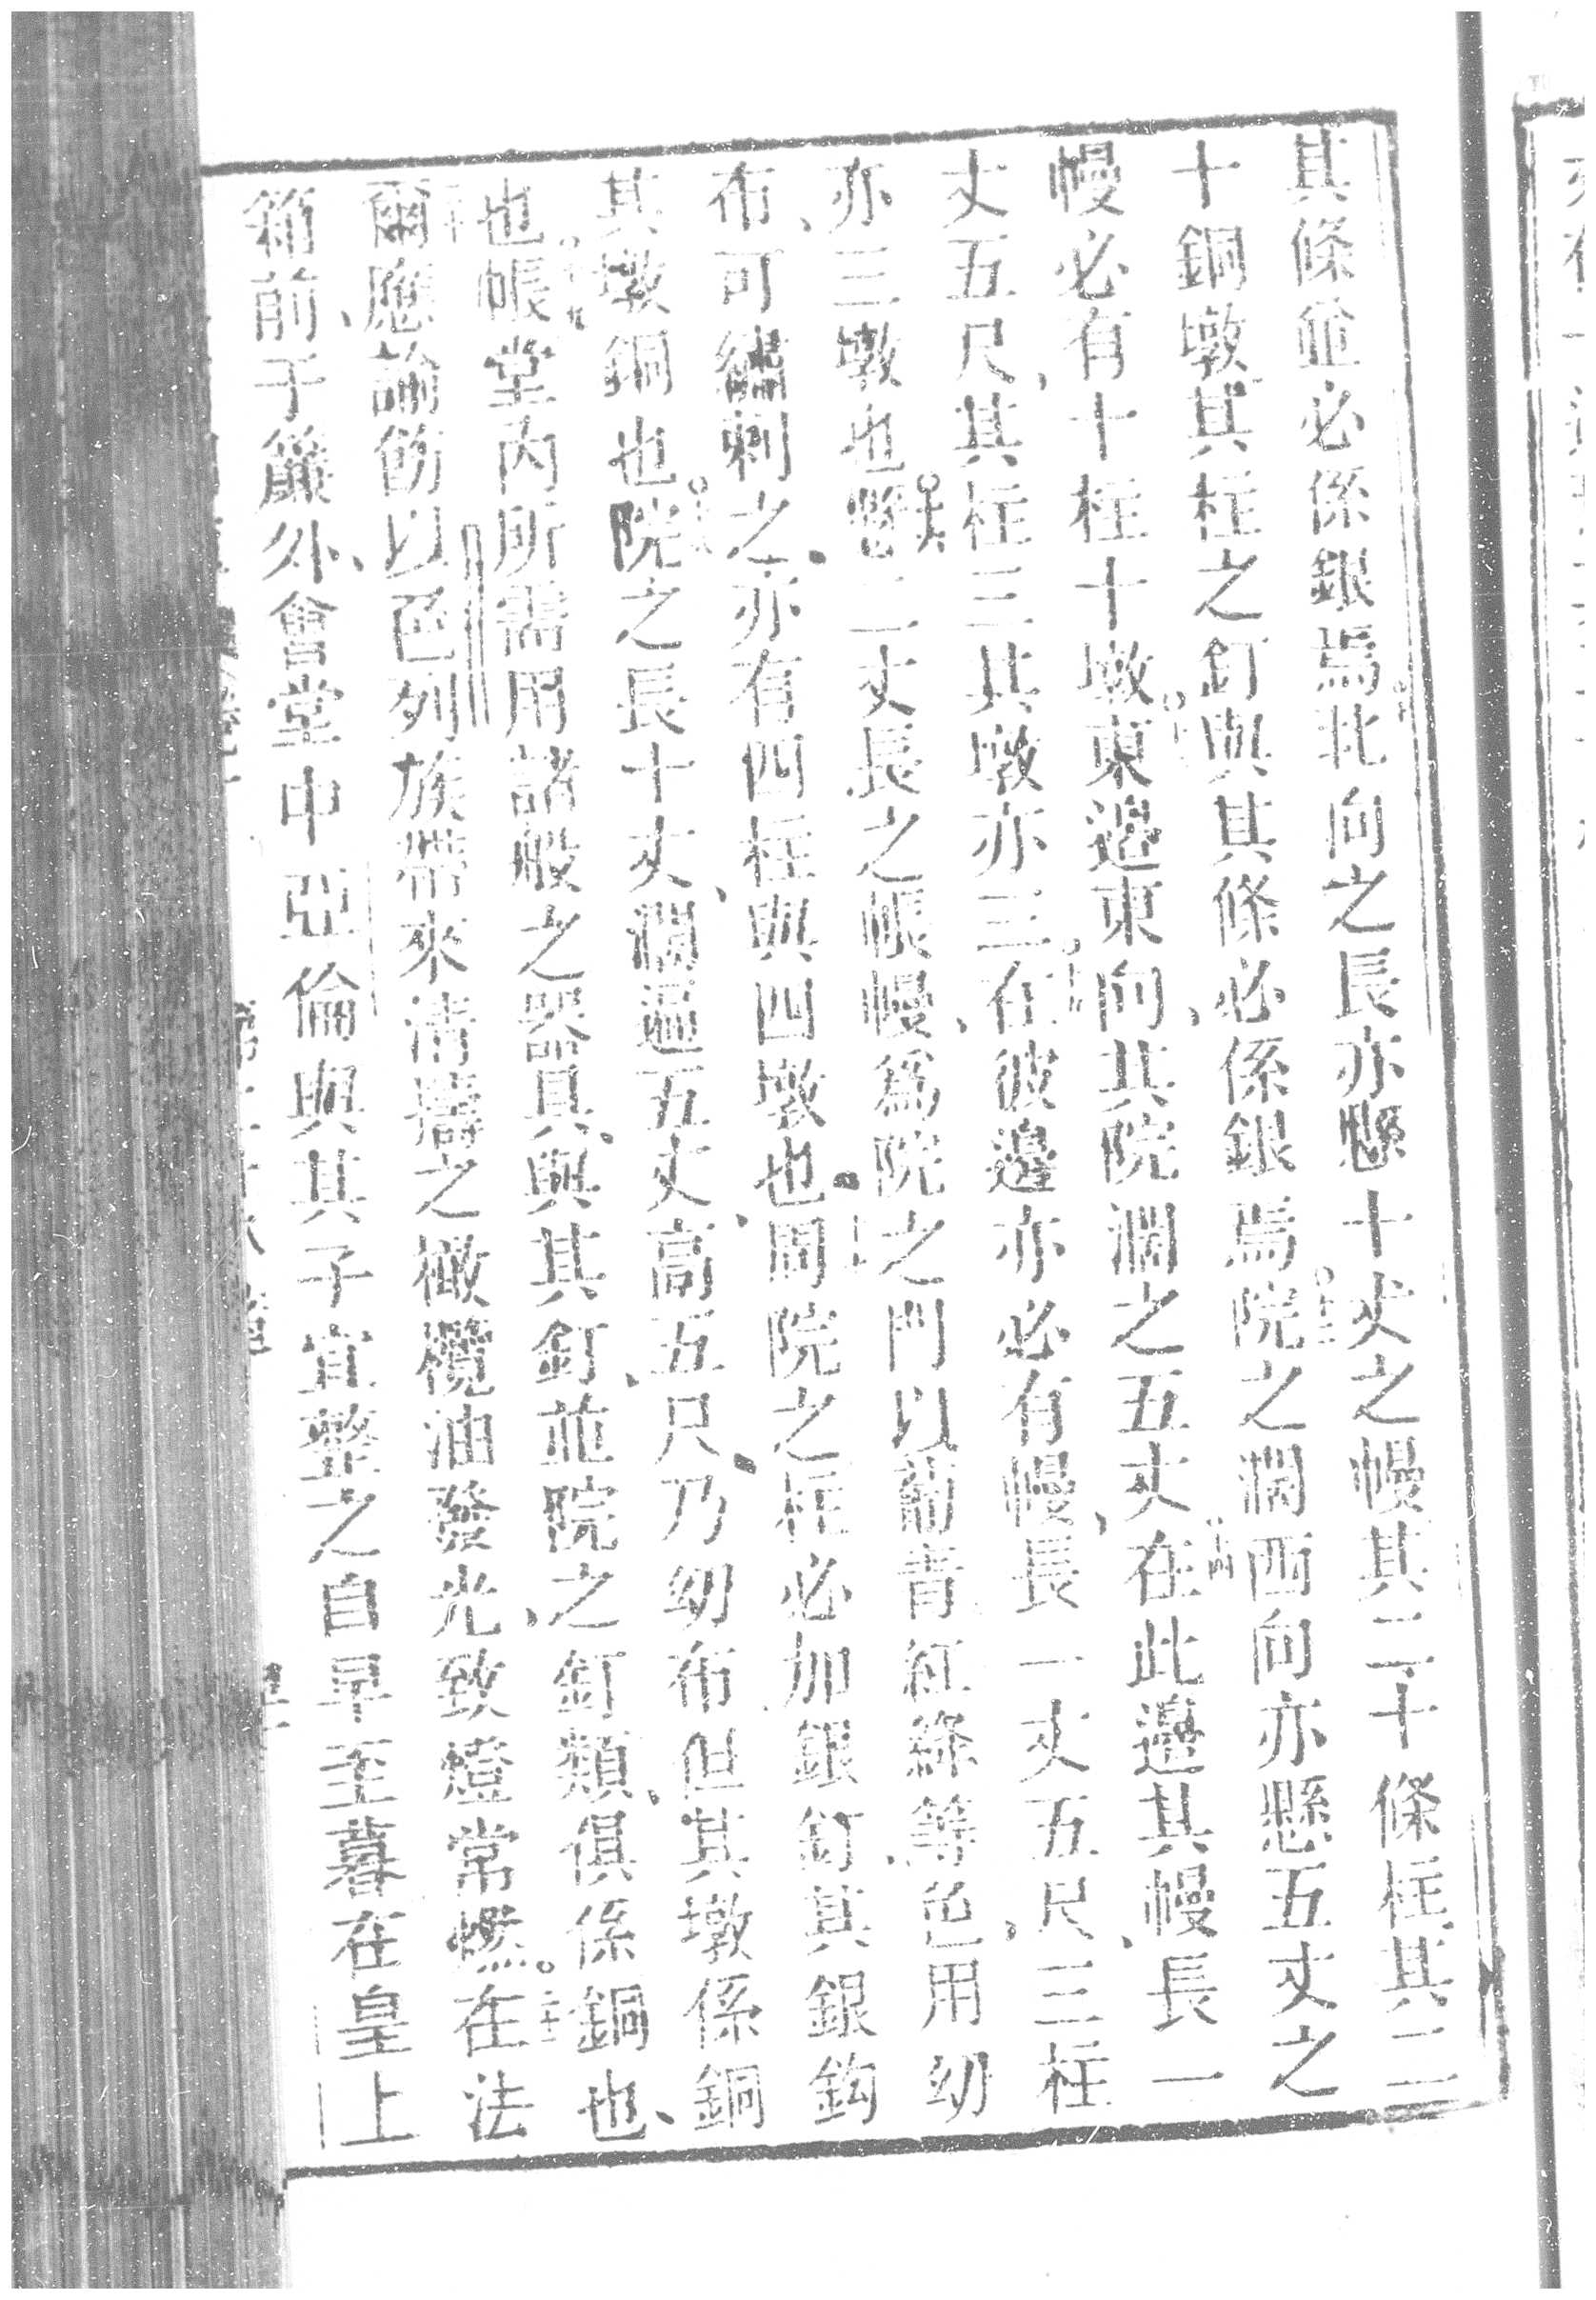 其條並必係銀焉北向之長亦懸十丈之幔其二十條柱其二
十銅墩其柱之釘與其條必係銀焉院之濶西向亦懸五丈之
幔必有十柱十墩東邉東向其院濶之五丈在此邉其幔長一
丈五尺其柱三其墩亦三在彼邉亦必有幔長一丈五尺三柱
亦三墩也懸二丈長之帳幔爲院之門以葡青紅綠等色用幼
布可繡刺之亦有四柱與四墩也周院之柱必加銀釘其銀鈎
其墩銅也院之長十丈濶遍五丈高五尺乃幼布但其墩係銅
也帳堂內所需用諸般之器具與其釘並院之釘類俱係銅也
爾應諭飭以色列族帶來清擣之橄欖油發光致燈常燃在法
箱前于簾外會堂中亞倫與其子宜整之自早至暮在皇上